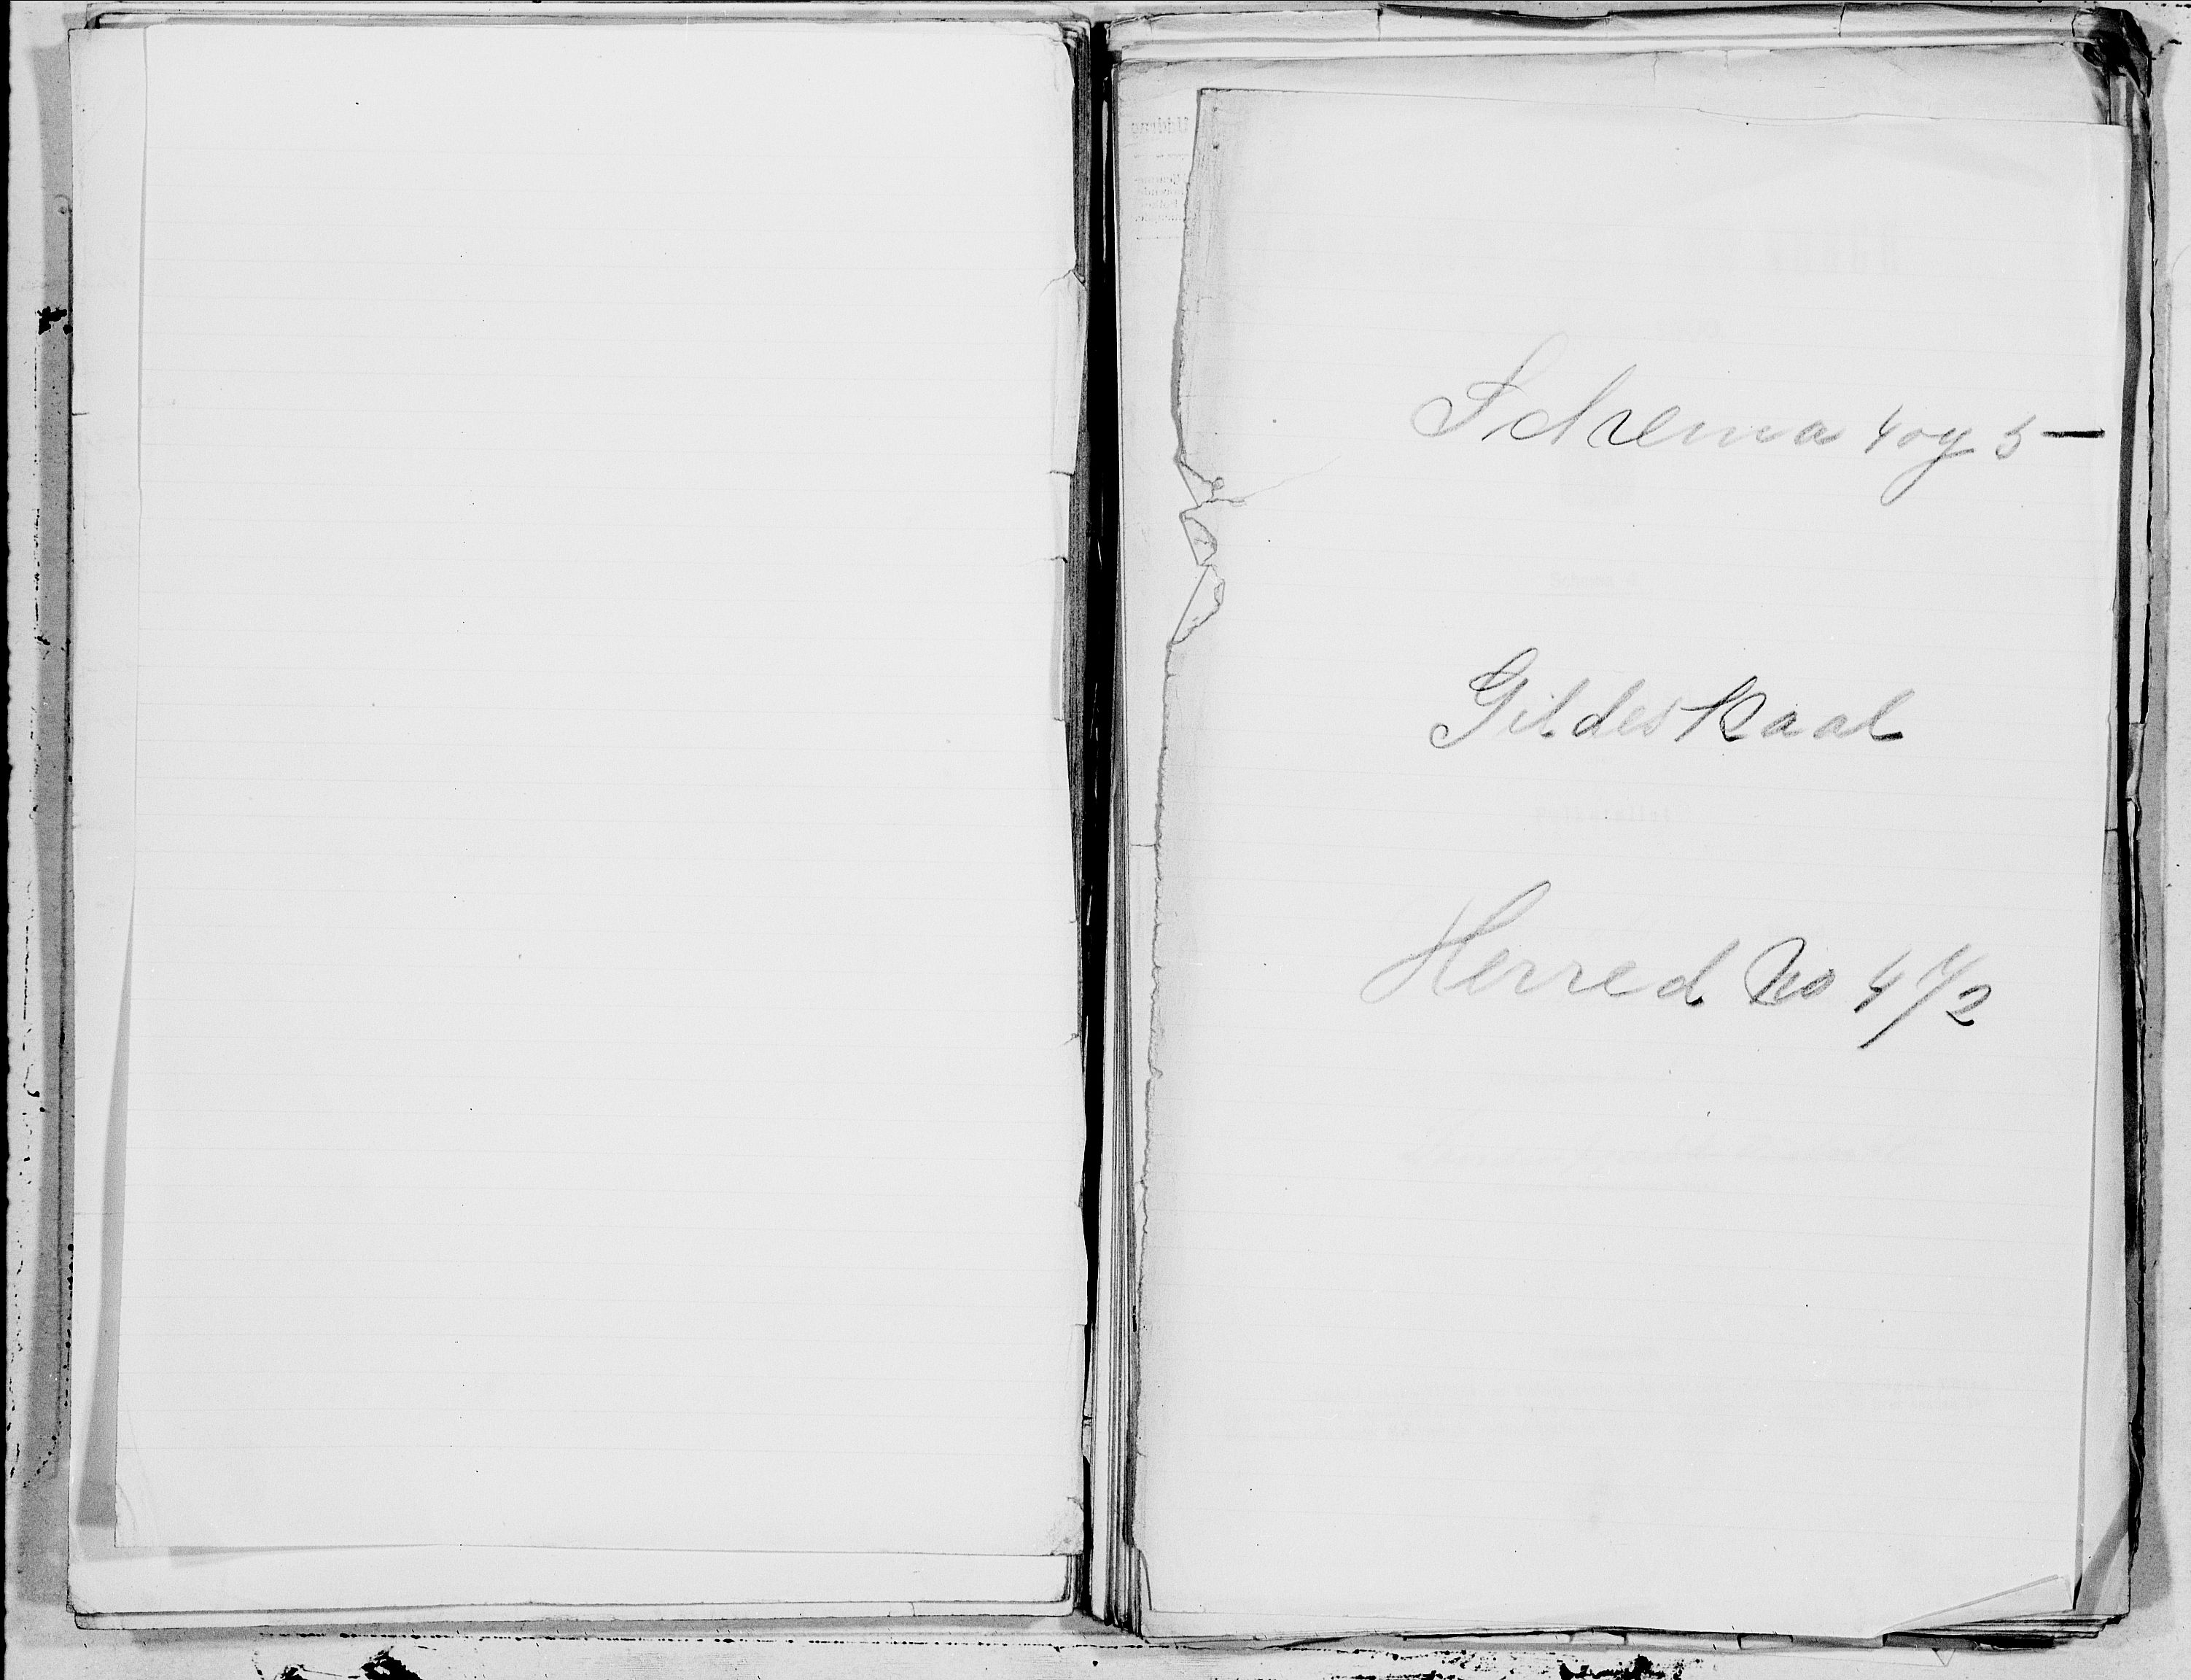 Schema 4 og 5 —
Gildeskaal
Herred No 4 1/2